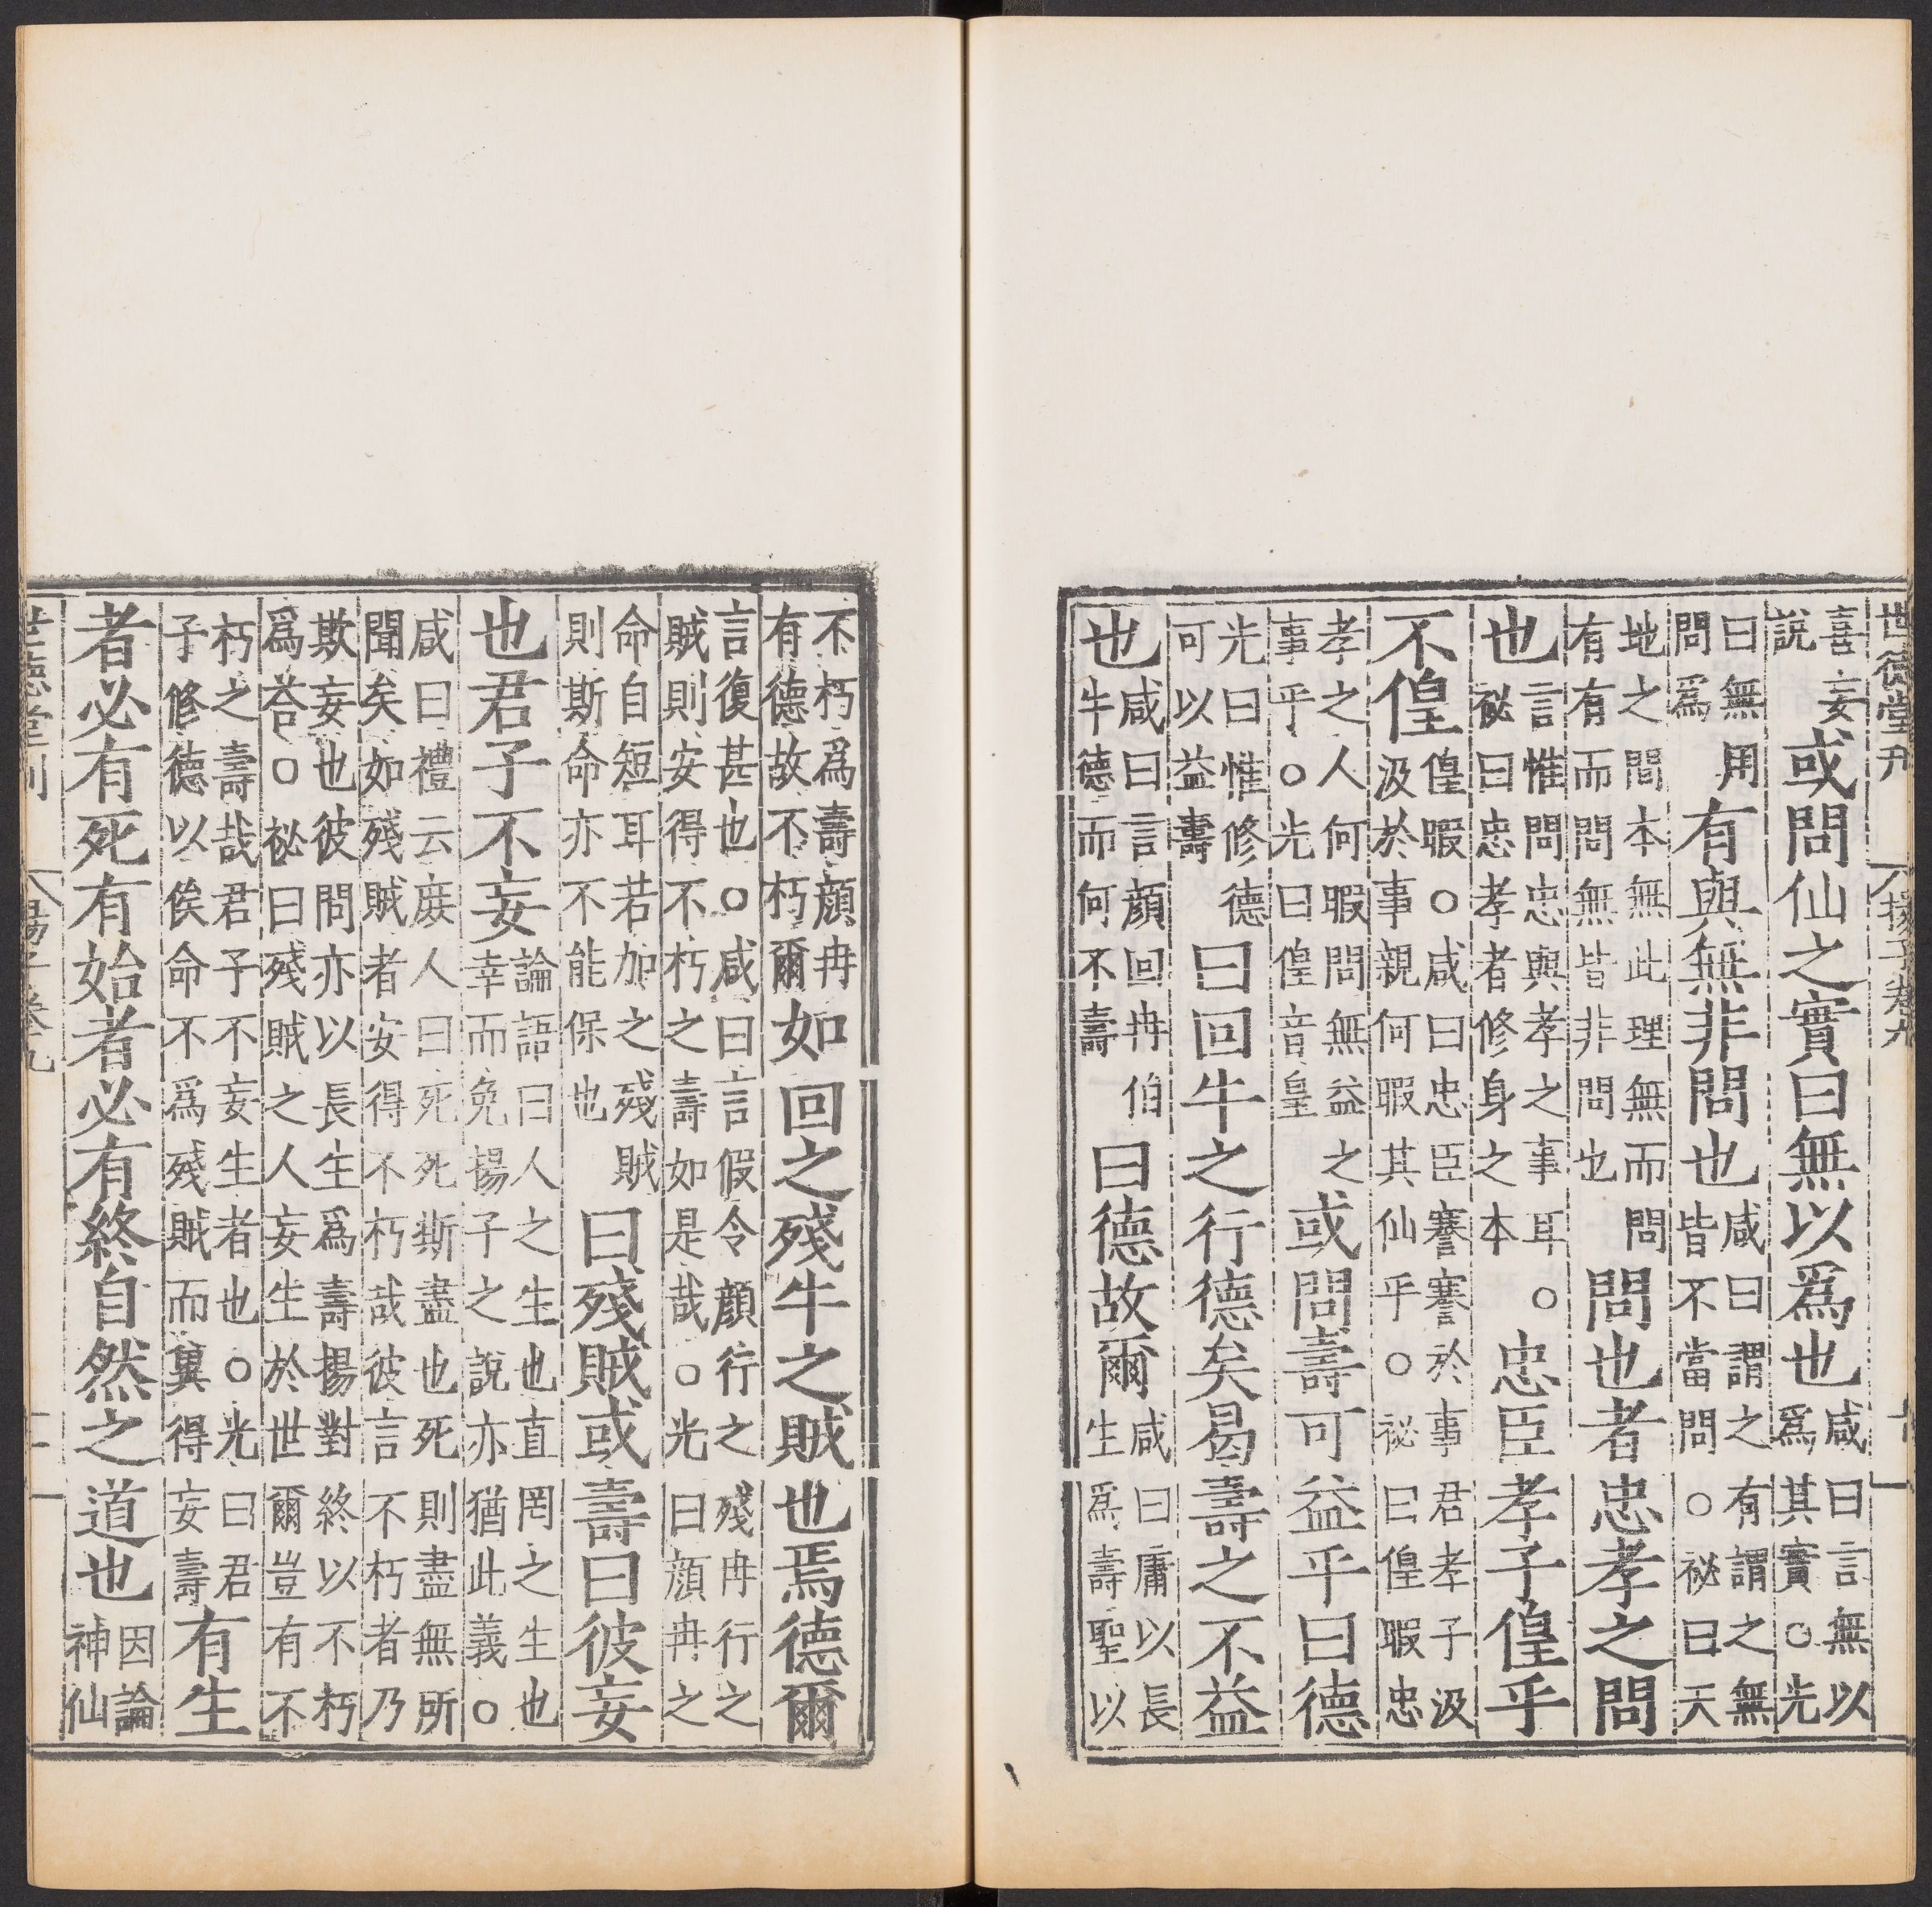 世德堂刋 揚子卷九 十
喜妄說或問仙之實曰無以爲也咸曰言無以爲其實○光
曰無用問爲有與無非問也咸曰謂之有謂之無皆不當問○祕曰天
地之間本無此理無而問有有而問無皆非問也問也者忠孝之問
也言惟問忠與孝之事耳○祕曰忠孝者修身之本忠臣孝子偟乎
不偟偟暇○咸曰忠臣謇謇於事君孝子汲汲於事親何暇其仙乎○祕曰偟暇忠
孝之人何暇問無益之事乎○光曰偟音皇或問壽可益乎曰德
光曰惟修德可以益壽曰回牛之行德矣曷壽之不益
也咸曰言顔回冉伯牛德而何不壽曰德故爾咸曰庸以長生爲壽聖以
不朽爲壽顔冉有德故不朽爾如回之殘牛之賊也焉德爾
言復甚也○咸曰言假令顔行之殘冉行之賊則安得不朽之壽如是哉○光曰顔冉之
命自短耳若加之殘賊則斯命亦不能保也曰殘賊或壽曰彼妄
也君子不妄論語曰人之生也直罔之生也幸而免揚子之說亦猶此義○
咸曰禮云庶人曰死死斯盡也死則盡無所聞矣如殘賊者安得不朽哉彼言不朽者乃
欺妄也彼問亦以長生爲壽揚對終以不朽爲荅○祕曰殘賊之人妄生於世爾豈有不
朽之壽哉君子不妄生者也○光曰君子修德以俟命不爲殘賊而冀得妄壽有生
者必有死有始者必有終自然之道也因論神仙
世德堂刊 揚子卷九 十一